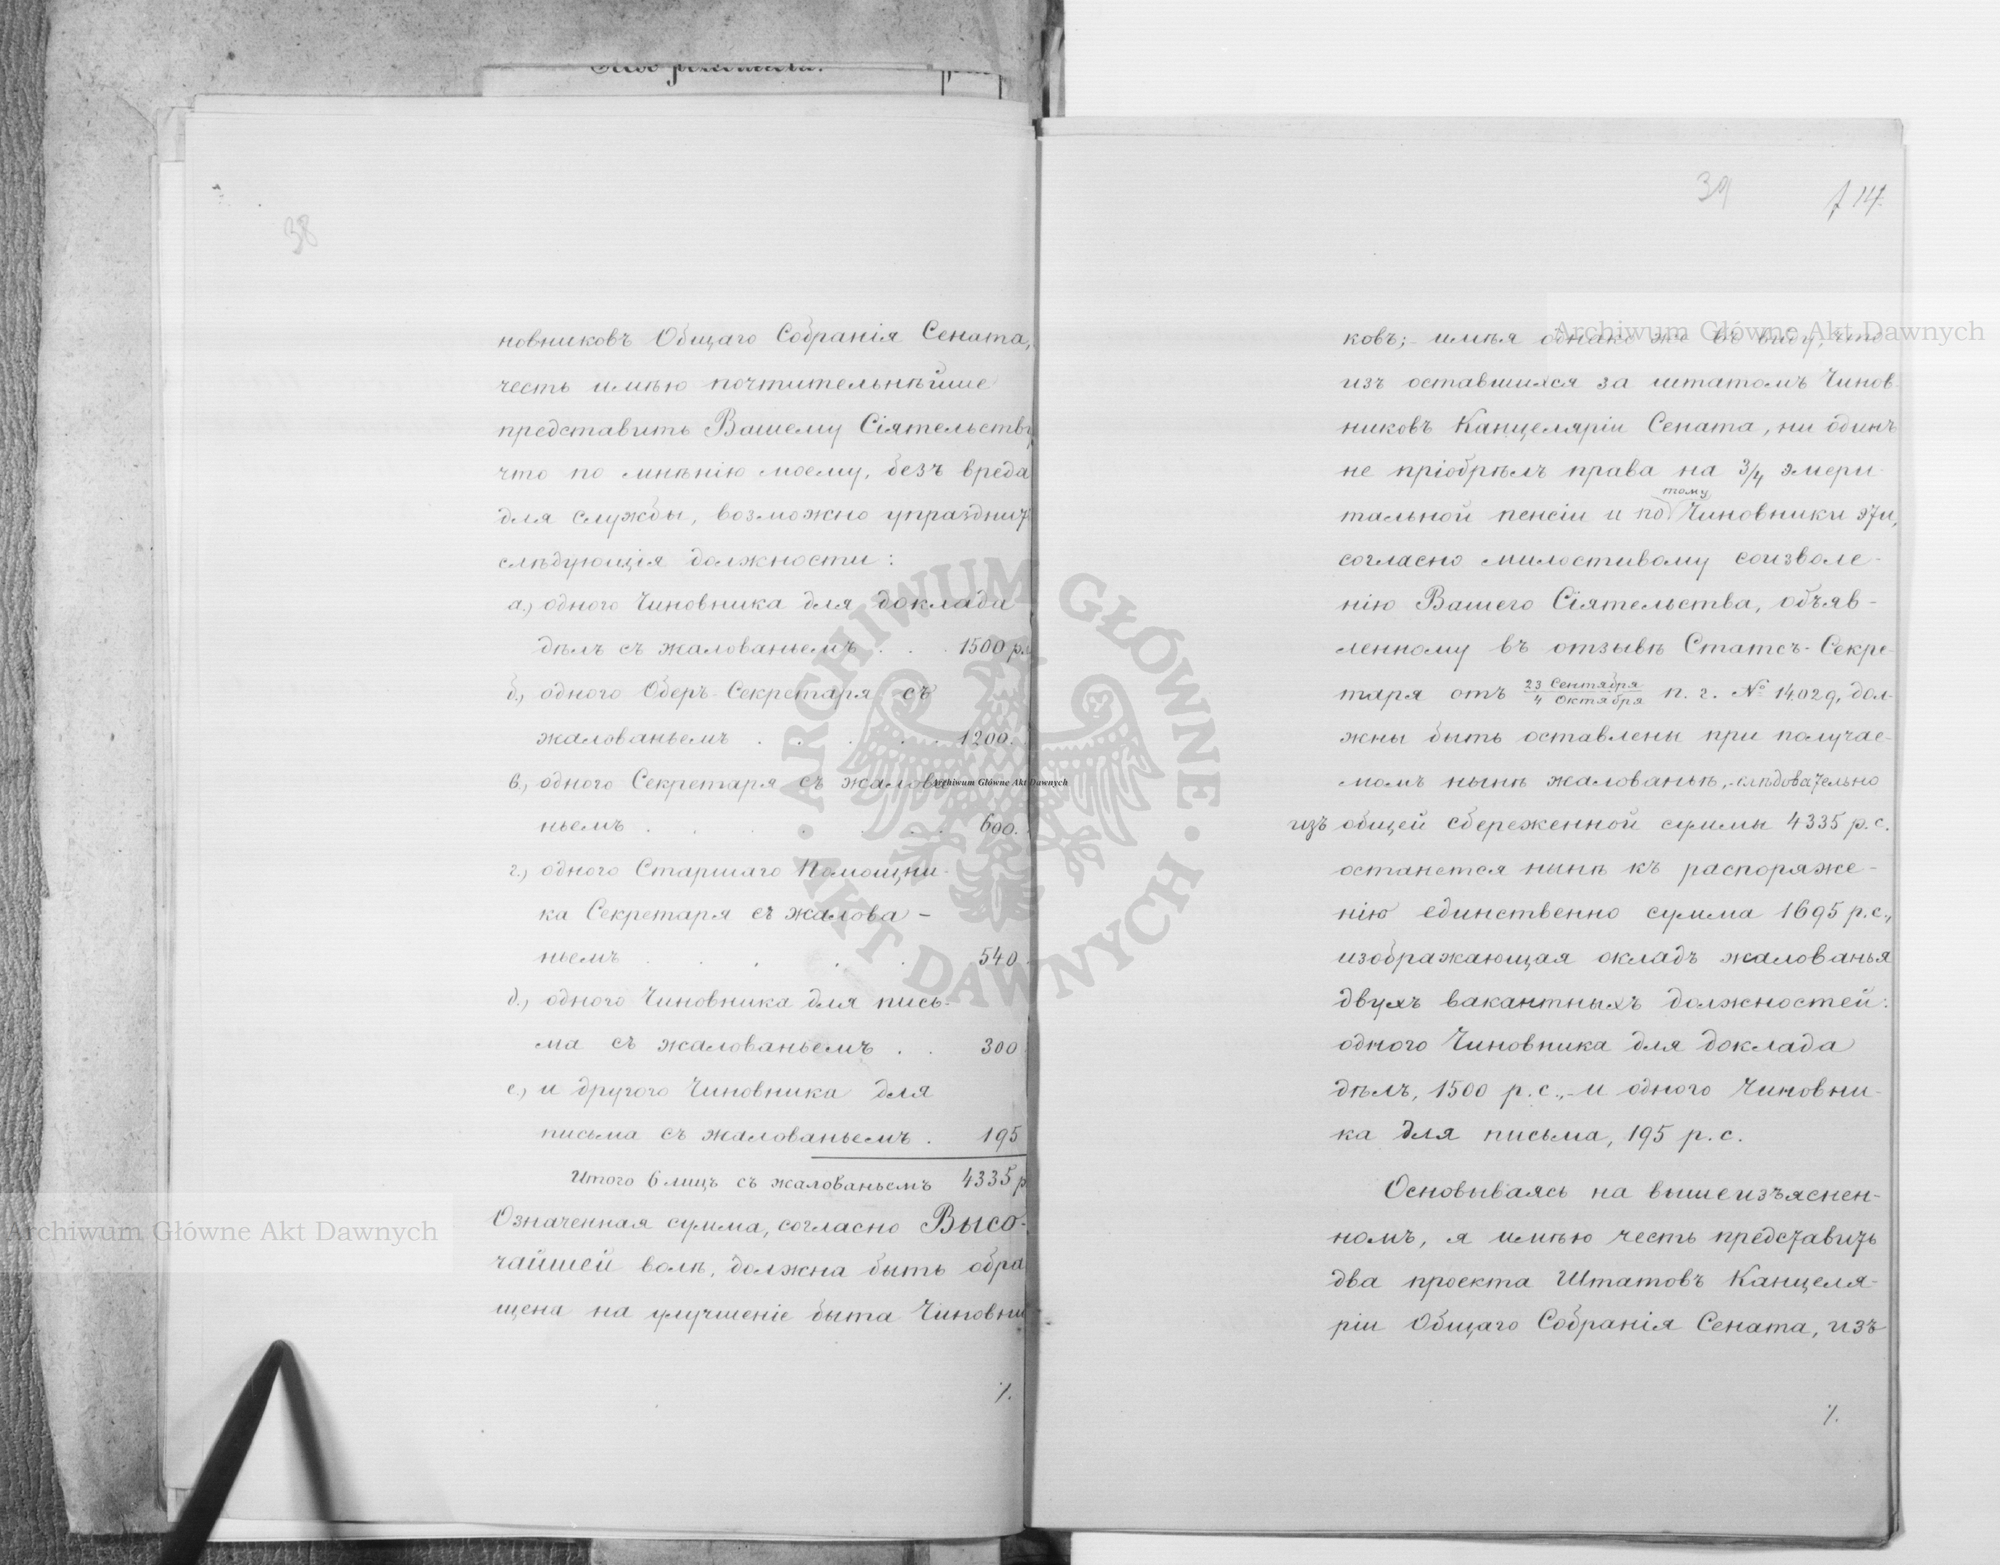 38
новниковъ Общаго Собранія Сената,
честь имѣю почтительнѣйше
представить Вашему Сіятельству
что по мнѣнію моему, безъ вреда
для службы, возможно упразднить
слѣдующія должности:
а., одного Чиновника для доклада
дѣлъ съ жалованьемъ . . . 1500 р.
б., одного Оберъ-Секретаря съ
жалованьемъ . . . . . 1200.
в., одного Секретаря съ жалова
ньемъ . . . . . 600.
г., одного Старшаго Помощни-
ка Секретаря съ жалова-
ньемъ . . . . 540.
д., одного Чиновника для пись-
ма съ жалованьемъ . . 300
е., и другого Чиновника для
письма съ жалованьемъ . 195
Итого 6 лицъ съ жалованьемъ 4335 р
Означенная сумма, согласно Высо-
чайшей волѣ, должна быть обра
щена на улучшеніе быта Чиновни
%.
39
714.
ковъ; имѣя однако же въ виду, что
изъ оставшихся за штатомъ Чинов
никовъ Канцеляріи Сената, ни одинъ
не пріобрѣлъ права на 3/4 эмери-
тому
тальной пенсіи и по Чиновники эти,
согласно милостивому соизволе-
нію Вашего Сіятельства, объяв-
ленному въ отзывѣ Статсъ-Секре
таря отъ 23 Сентября/4 Октября п. г. № 14029, дол-
жны быть оставлены при получае-
момъ нынѣ жалованьѣ, слѣдовательно
изъ общей сбереженной суммы 4335 р. с.
останется нынѣ къ распоряже-
нію единственно сумма 1695 р. с.,
изображающая окладъ жалованья
двухъ вакантныхъ должностей:
одного Чиновника для доклада
дѣлъ, 1500 р. с., и одного Чиновни-
ка для письма, 195 р. с.
Основываясь на вышеизъяснен-
номъ, я имѣю честь представить
два проекта Штатовъ Канцеля-
ріи Общаго Собранія Сената, изъ
%.
Archiwum Główne Akt Dawnych
Archiwum Główne Akt Dawnych
Archiwum Główne Akt Dawnych
ARCHIWUM GŁÓWNE · AKT DAWNYCH ·